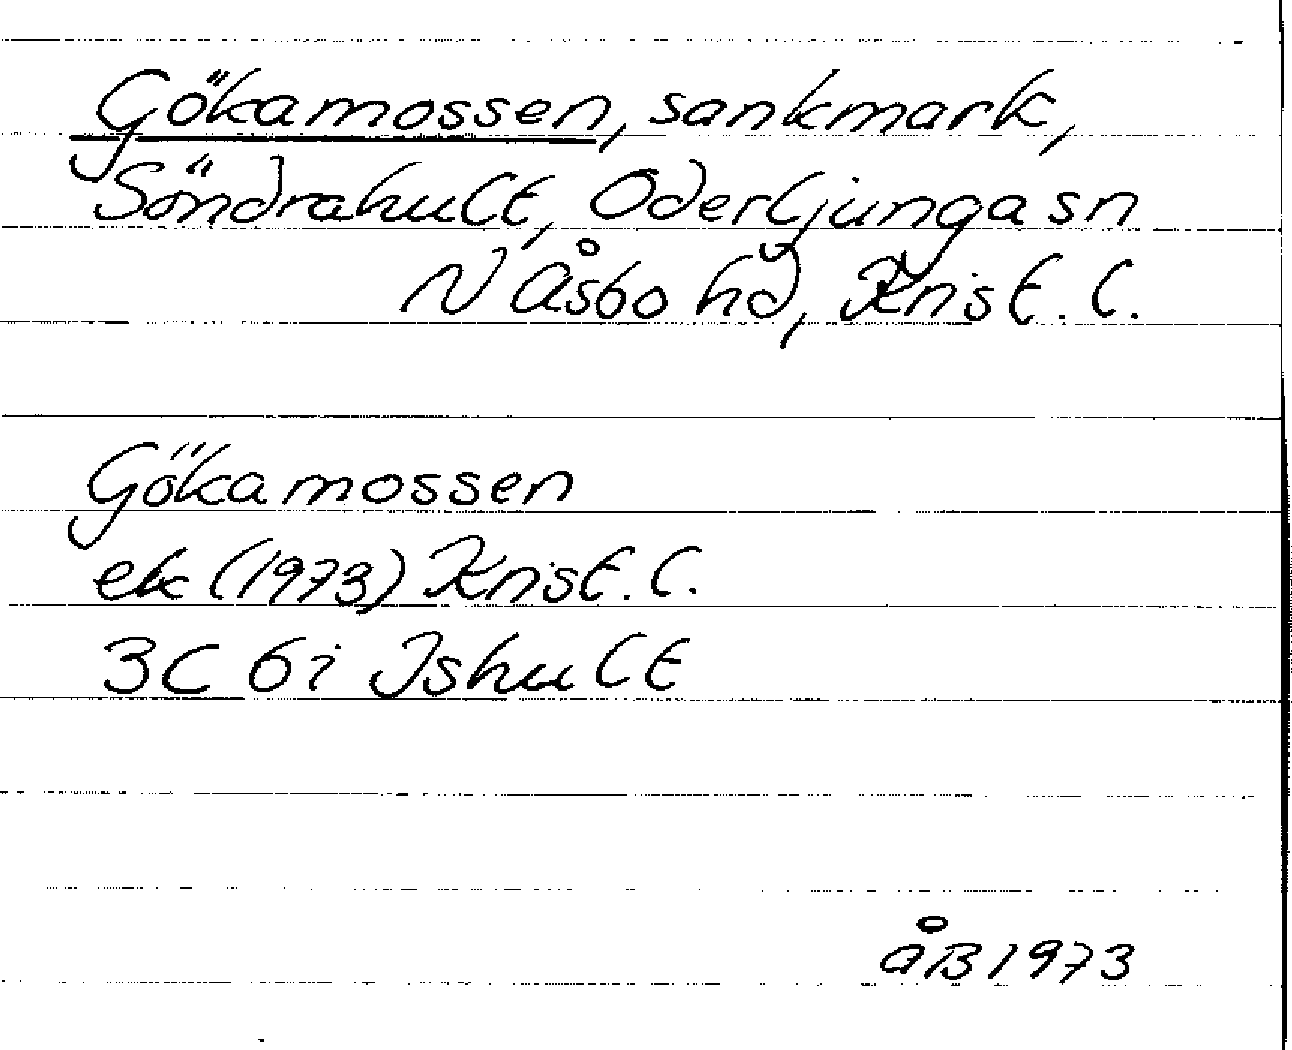 Gökamossen, sankmark,
Söndrahult, Oderljunga sn
N Åsbo hd, Krist. l.
Gökamossen
ek (1973) Krist. l.
3C 6i Ishult
åB 1973